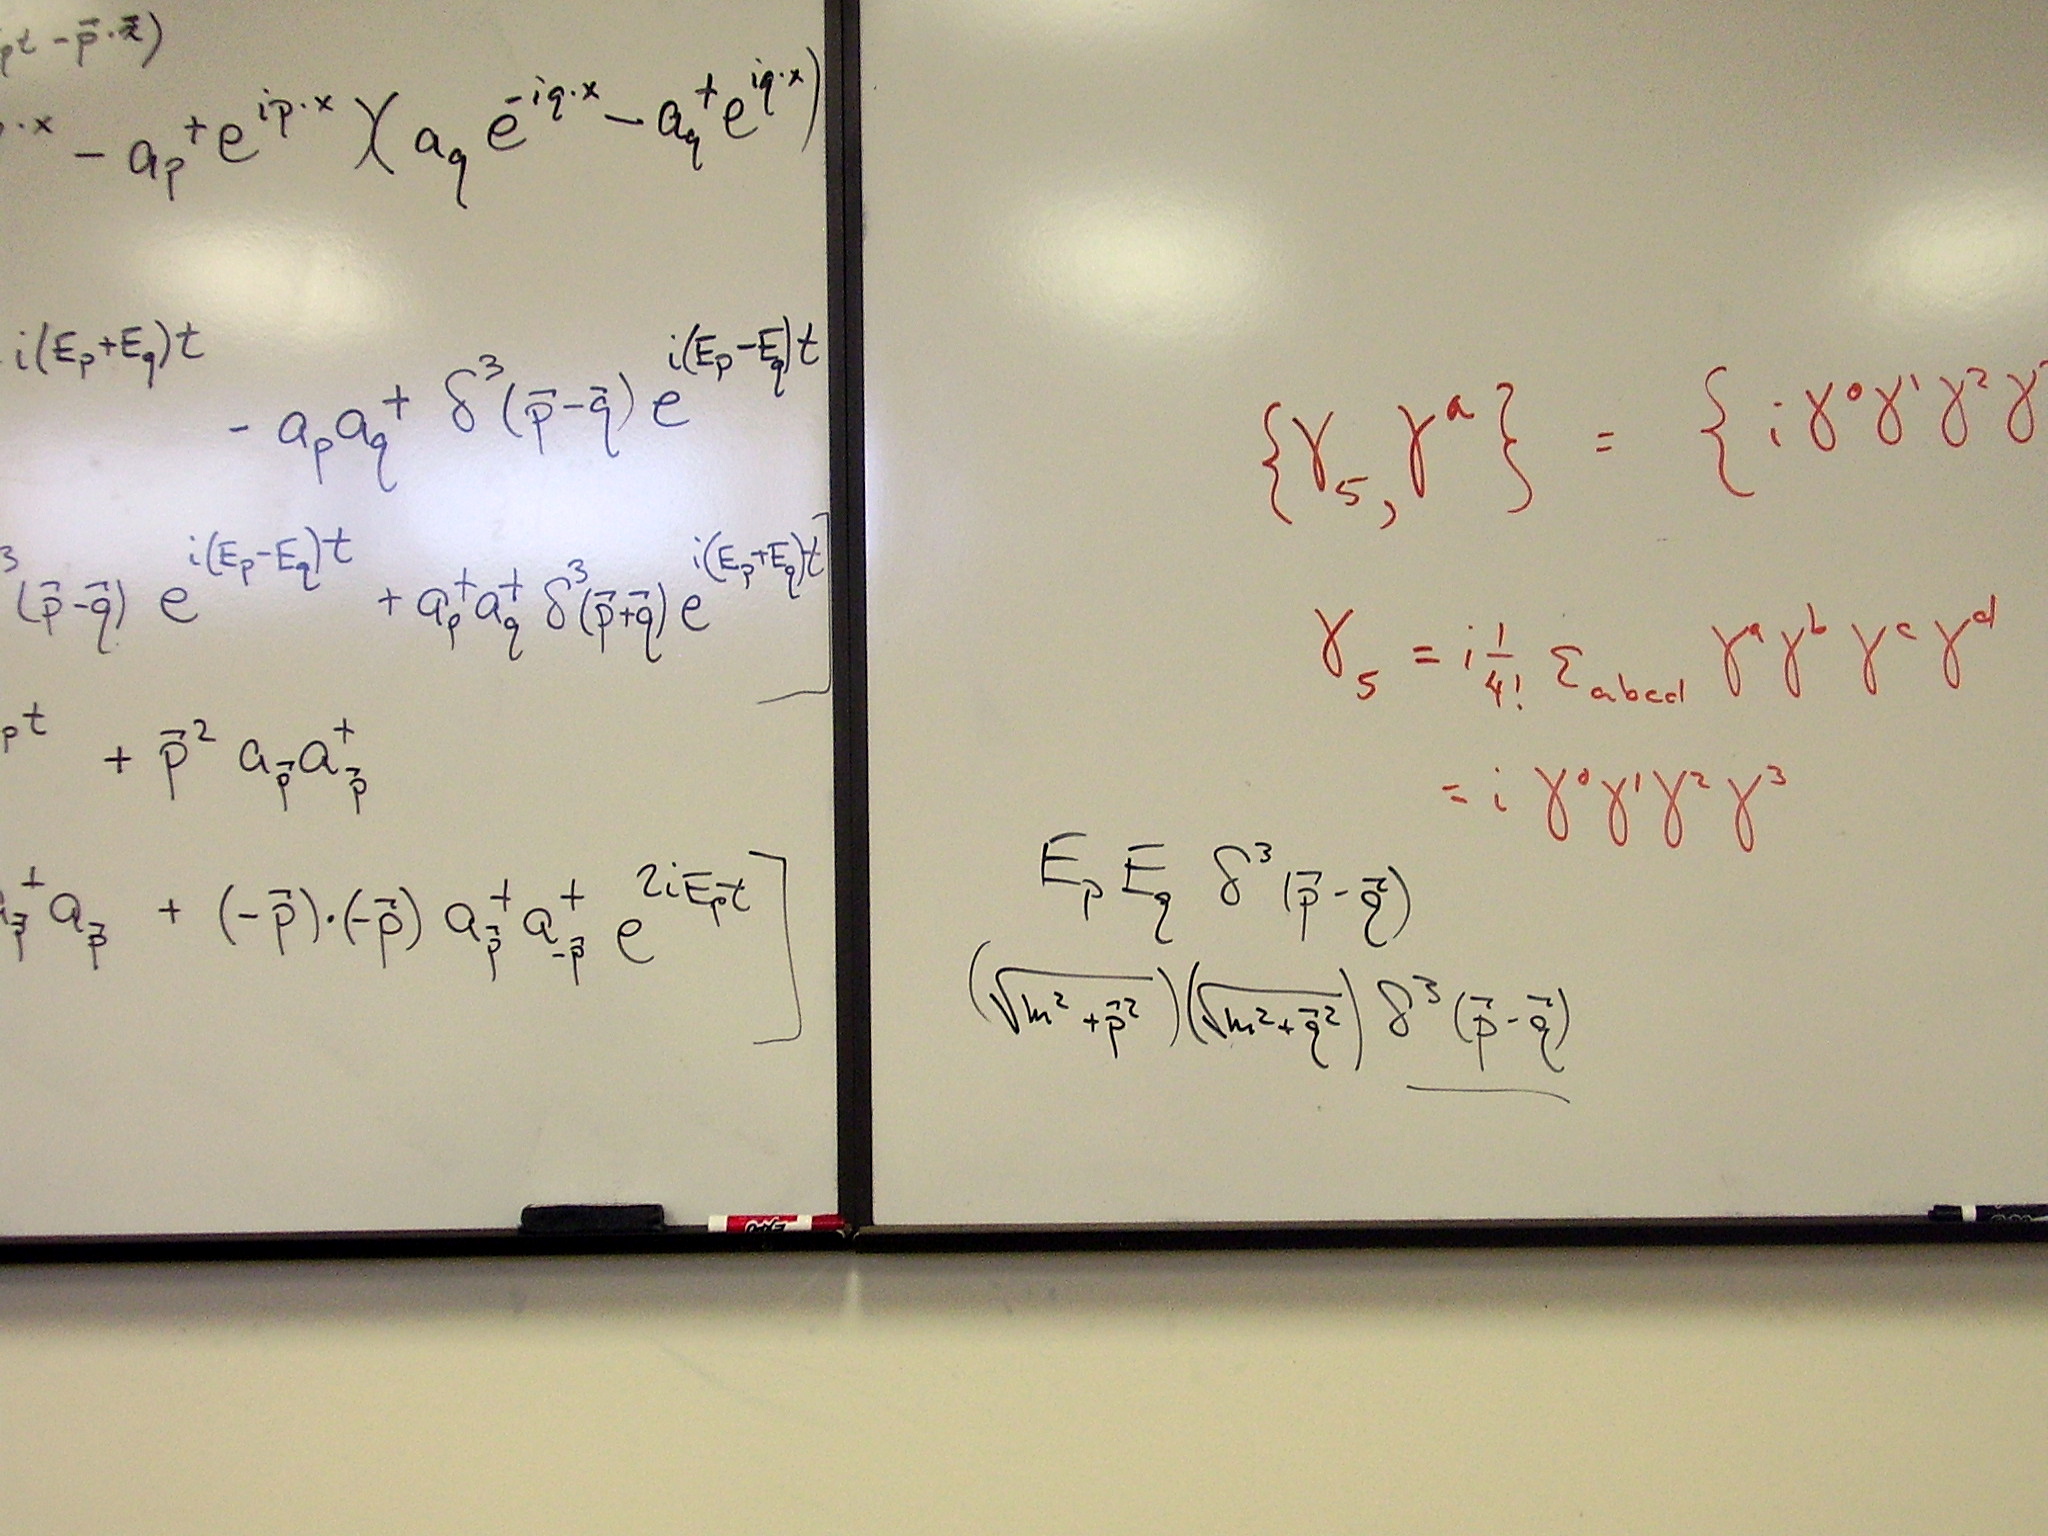 pt - p⃗·x⃗)
·x - aₚ⁺e^{ip·x})(a_q e^{-iq·x} - a_q⁺e^{iq·x})
i(Eₚ+E_q)t - aₚa_q⁺ δ³(p⃗-q⃗) e^{i(Eₚ-E_q)t}
³(p⃗-q⃗) e^{i(Eₚ-E_q)t} + aₚ⁺a_q⁺ δ³(p⃗+q⃗) e^{i(Eₚ+E_q)t}]
pt + p⃗² a_p⃗ a_p⃗⁺
a_p⃗⁺a_p⃗ + (-p⃗)·(-p⃗) a_p⃗⁺a_{-p⃗}⁺ e^{2iE_p⃗t}]
{γ₅, γ^a} = {iγ⁰γ¹γ²γ
γ₅ = i 1/4! ε_{abcd} γ^aγ^bγ^cγ^d
= i γ⁰γ¹γ²γ³
EₚE_q δ³(p⃗-q⃗)
(√(m²+p⃗²))(√(m²+q⃗²)) δ³(p⃗-q⃗)